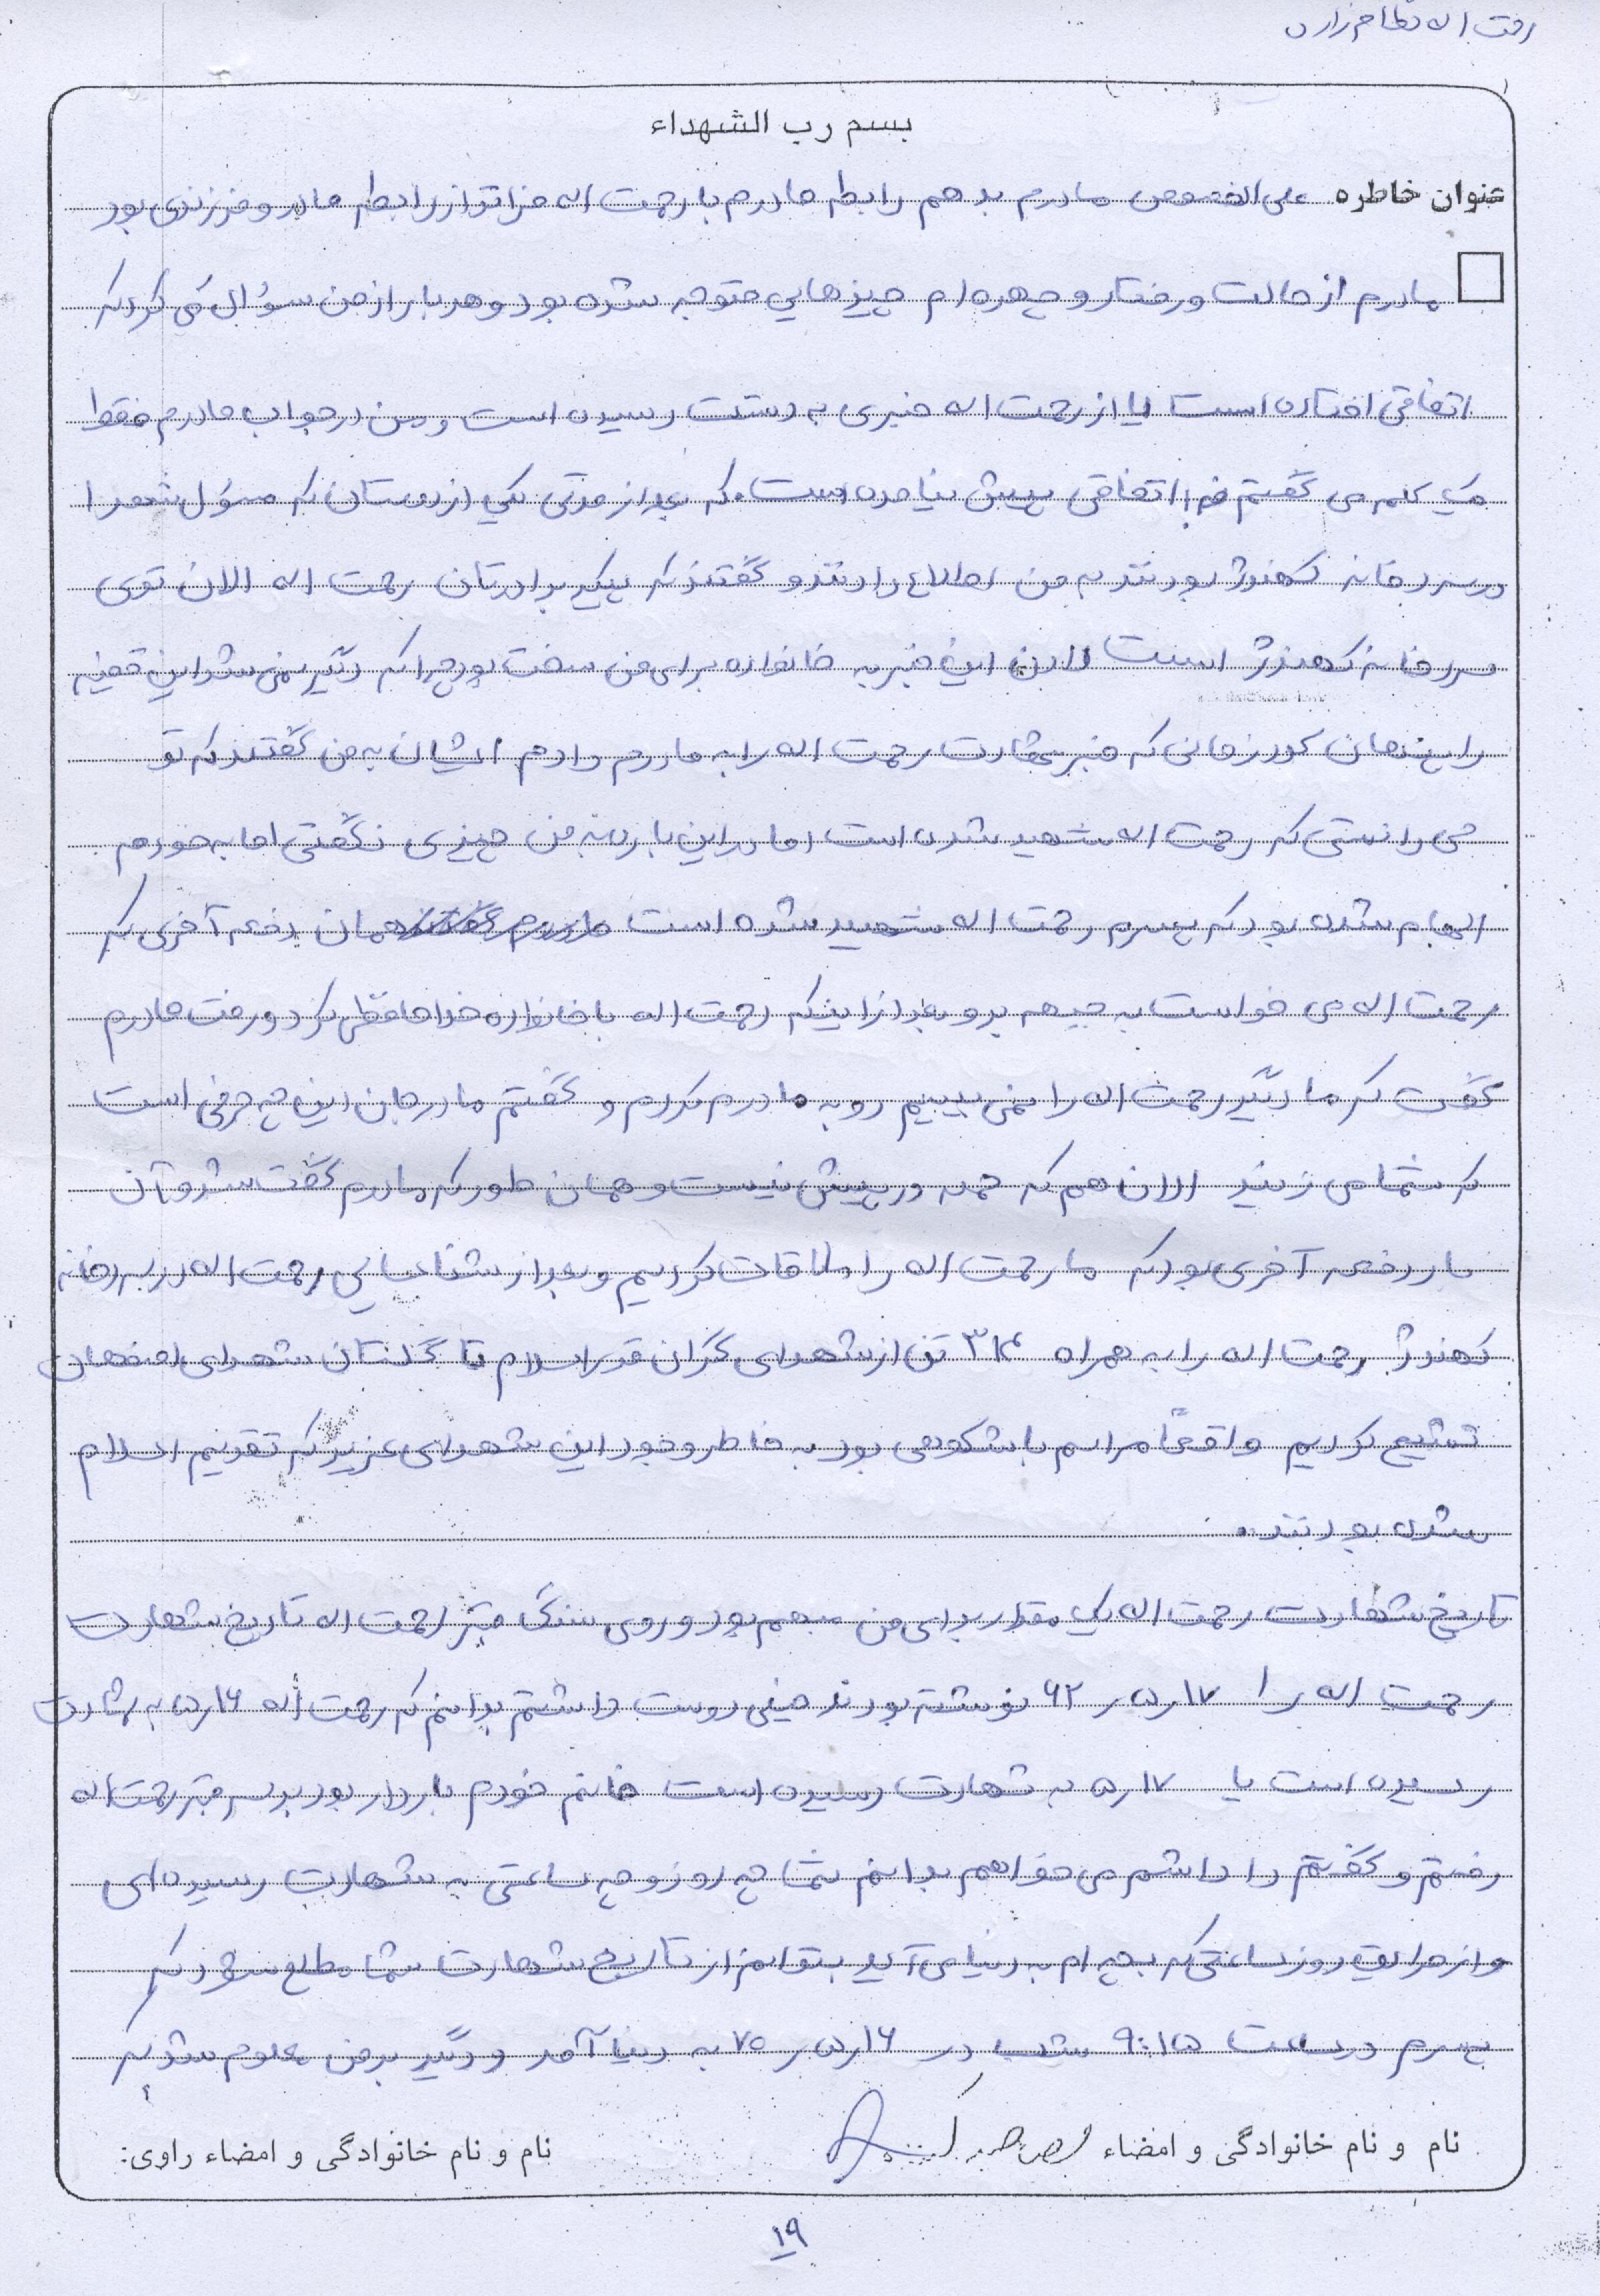 رحمت اله نظام زاده
بسم رب الشهداء
عنوان خاطره علی الخصوص مادرم بدهم رابطه مادرم با رحمت اله فراتر از رابطه مادر و فرزندی بود
مادرم از حالت و رفتار و چهره ام چیزهایی متوجه شده بود و هر بار از من سؤال می کرد که
اتفاقی افتاده است یا از رحمت اله خبری به دستت رسیده است و من در جواب مادرم فقط
یک کلمه می گفتم اتفاقی پیش نیامده است. که بعد از مدتی یکی از دوستان که مسؤل شهدا
در سردخانه کهندژ بودند به من اطلاع دادند و گفتند که پیکر برادرتان رحمت اله الان توی
سردخانه کهندژ است دادن این خبر به خانواده برای من سخت بود چرا که دیگر نمی شد این قضیه
را پنهان کرد زمانی که خبر شهادت رحمت اله را به مادرم دادم ایشان به من گفتند که تو
می دانستی که رحمت اله شهید شده است اما در این باره به من چیزی نگفتی اما به خودم
الهام شده بود که پسرم رحمت اله شهید شده است همان دفعه آخری که
رحمت اله می خواست به جبهه برود بعد از اینکه رحمت اله با خانواده خداحافظی کرد و رفت مادرم
گفت که ما دیگر رحمت اله را نمی بینیم رو به مادرم کردم و گفتم مادر جان این چه حرفی است
که شما می زنید الان هم که حمله در پیش نیست و همان طور که مادرم گفت شد و آن
بار دفعه آخری بود که ما رحمت اله را ملاقات کردیم و بعد از شناسایی رحمت اله در سردخانه
کهندژ رحمت اله را به همراه تن از شهدای گران قدر اسلام تا گلستان شهدای اصفهان
تشیع کردیم واقعاً مراسم باشکوهی بود به خاطر وجود این شهدای عزیز که تقدیم اسلام
شده بودند.
تاریخ شهادت رحمت اله یک مقدار برای من مبهم بود و روی سنگ قبر رحمت اله تاریخ شهادت
رحمت اله را ۱۷ر۵ر۶۲ نوشته بودند خیلی دوست داشتم بدانم که رحمت اله ۱۶ر۵ به شهادت
رسیده است یا ۱۷ر۵ به شهادت رسیده است خانم خودم باردار بود بر سر قبر رحمت اله
رفتم و گفتم داداشم می خواهم بدانم شما چه روز و چه ساعتی به شهادت رسیده ای
و از طریق روز ساعتی که بچه ام به دنیا می آید بتوانم از تاریخ شهادت شما مطلع شوم که
پسرم در ساعت ۹:۱۵ شب در ۱۶ر۵ر۷۵ به دنیا آمد و دیگر بر من معلوم شد که
نام و نام خانوادگی و امضاء
نام و نام خانوادگی و امضاء راوی:
۱۹